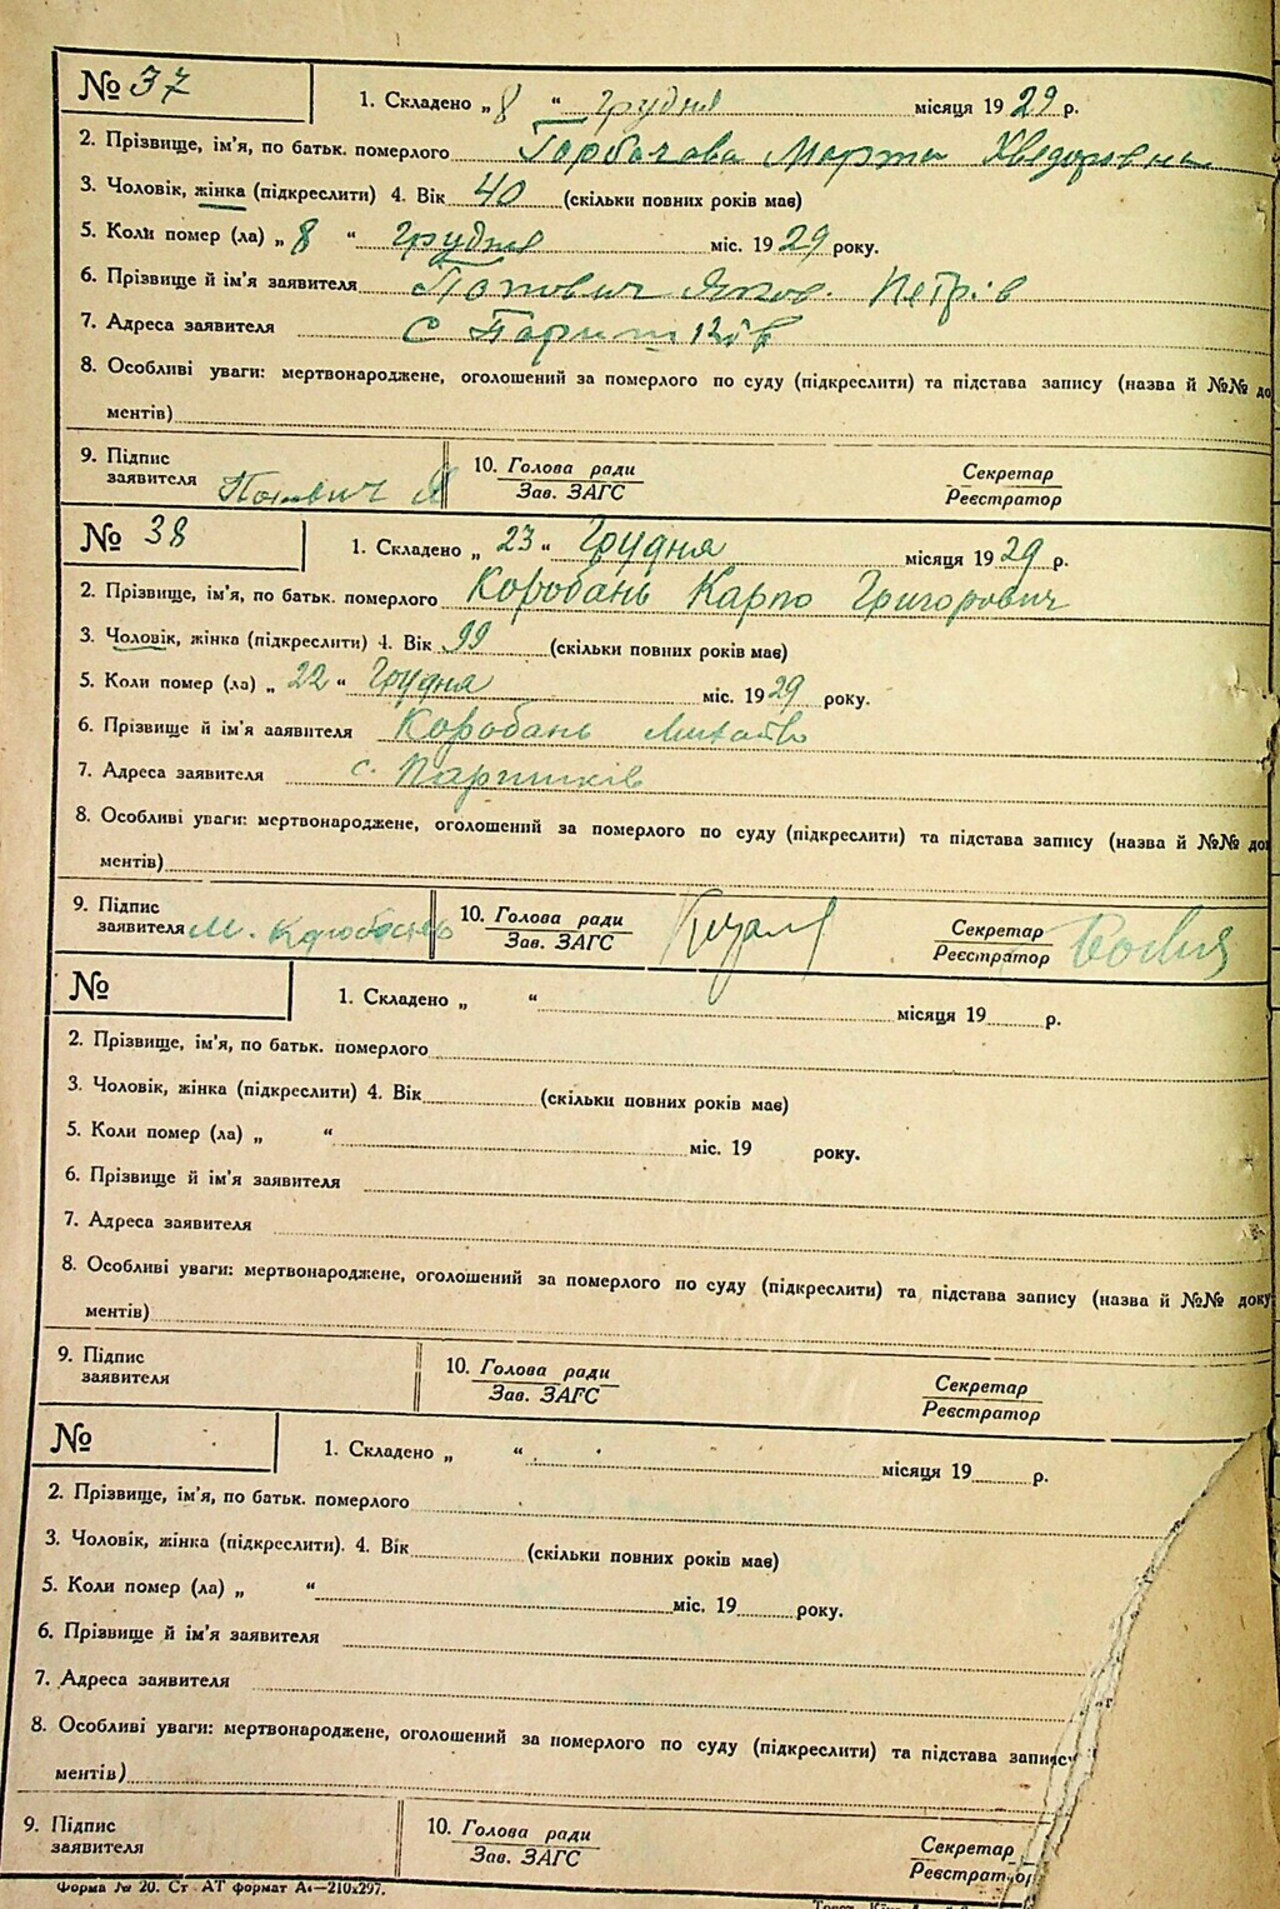 № 37
1. Складено „ 8 “ грудня місяця 1929 р.
2. Прізвище, ім'я, по батьк. померлого Горбачова Марта Хведоровна
3. Чоловік, жінка (підкреслити) 4. Вік 40 (скільки повних років має)
5. Коли помер (ла) „ 8 “ грудня міс. 1929 року.
6. Прізвище й ім'я заявителя Попович Яков. Петрів
7. Адреса заявителя с Паришків
8. Особливі уваги: мертвонароджене, оголошений за померлого по суду (підкреслити) та підстава запису (назва й №№ до
ментів)
9. Підпис заявителя Попович Я 10. Голова ради Зав. ЗАГС Секретар Реєстратор
№ 38
1. Складено „ 23 “ Грудня місяця 1929 р.
2. Прізвище, ім'я, по батьк. померлого Коробань Карпо Григорович
3. Чоловік, жінка (підкреслити) 4. Вік 99 (скільки повних років має)
5. Коли помер (ла) „ 22 “ Грудня міс. 1929 року.
6. Прізвище й ім'я заявителя Коробань Михайло
7. Адреса заявителя с. Паришків
8. Особливі уваги: мертвонароджене, оголошений за померлого по суду (підкреслити) та підстава запису (назва й №№ док
ментів)
9. Підпис заявителя М. Коробань 10. Голова ради Зав. ЗАГС Секретар Реєстратор
№
1. Складено „ “ місяця 19 р.
2. Прізвище, ім'я, по батьк. померлого
3. Чоловік, жінка (підкреслити) 4. Вік (скільки повних років має)
5. Коли помер (ла) „ “ міс. 19 року.
6. Прізвище й ім'я заявителя
7. Адреса заявителя
8. Особливі уваги: мертвонароджене, оголошений за померлого по суду (підкреслити) та підстава запису (назва й №№ доку
ментів)
9. Підпис заявителя 10. Голова ради Зав. ЗАГС Секретар Реєстратор
№
1. Складено „ “ місяця 19 р.
2. Прізвище, ім'я, по батьк. померлого
3. Чоловік, жінка (підкреслити). 4. Вік (скільки повних років має)
5. Коли помер (ла) „ “ міс. 19 року.
6. Прізвище й ім'я заявителя
7. Адреса заявителя
8. Особливі уваги: мертвонароджене, оголошений за померлого по суду (підкреслити) та підстава запису
ментів)
9. Підпис заявителя 10. Голова ради Зав. ЗАГС Секретар Реєстратор
Форма № 20. Ст АТ формат А4—210х297.